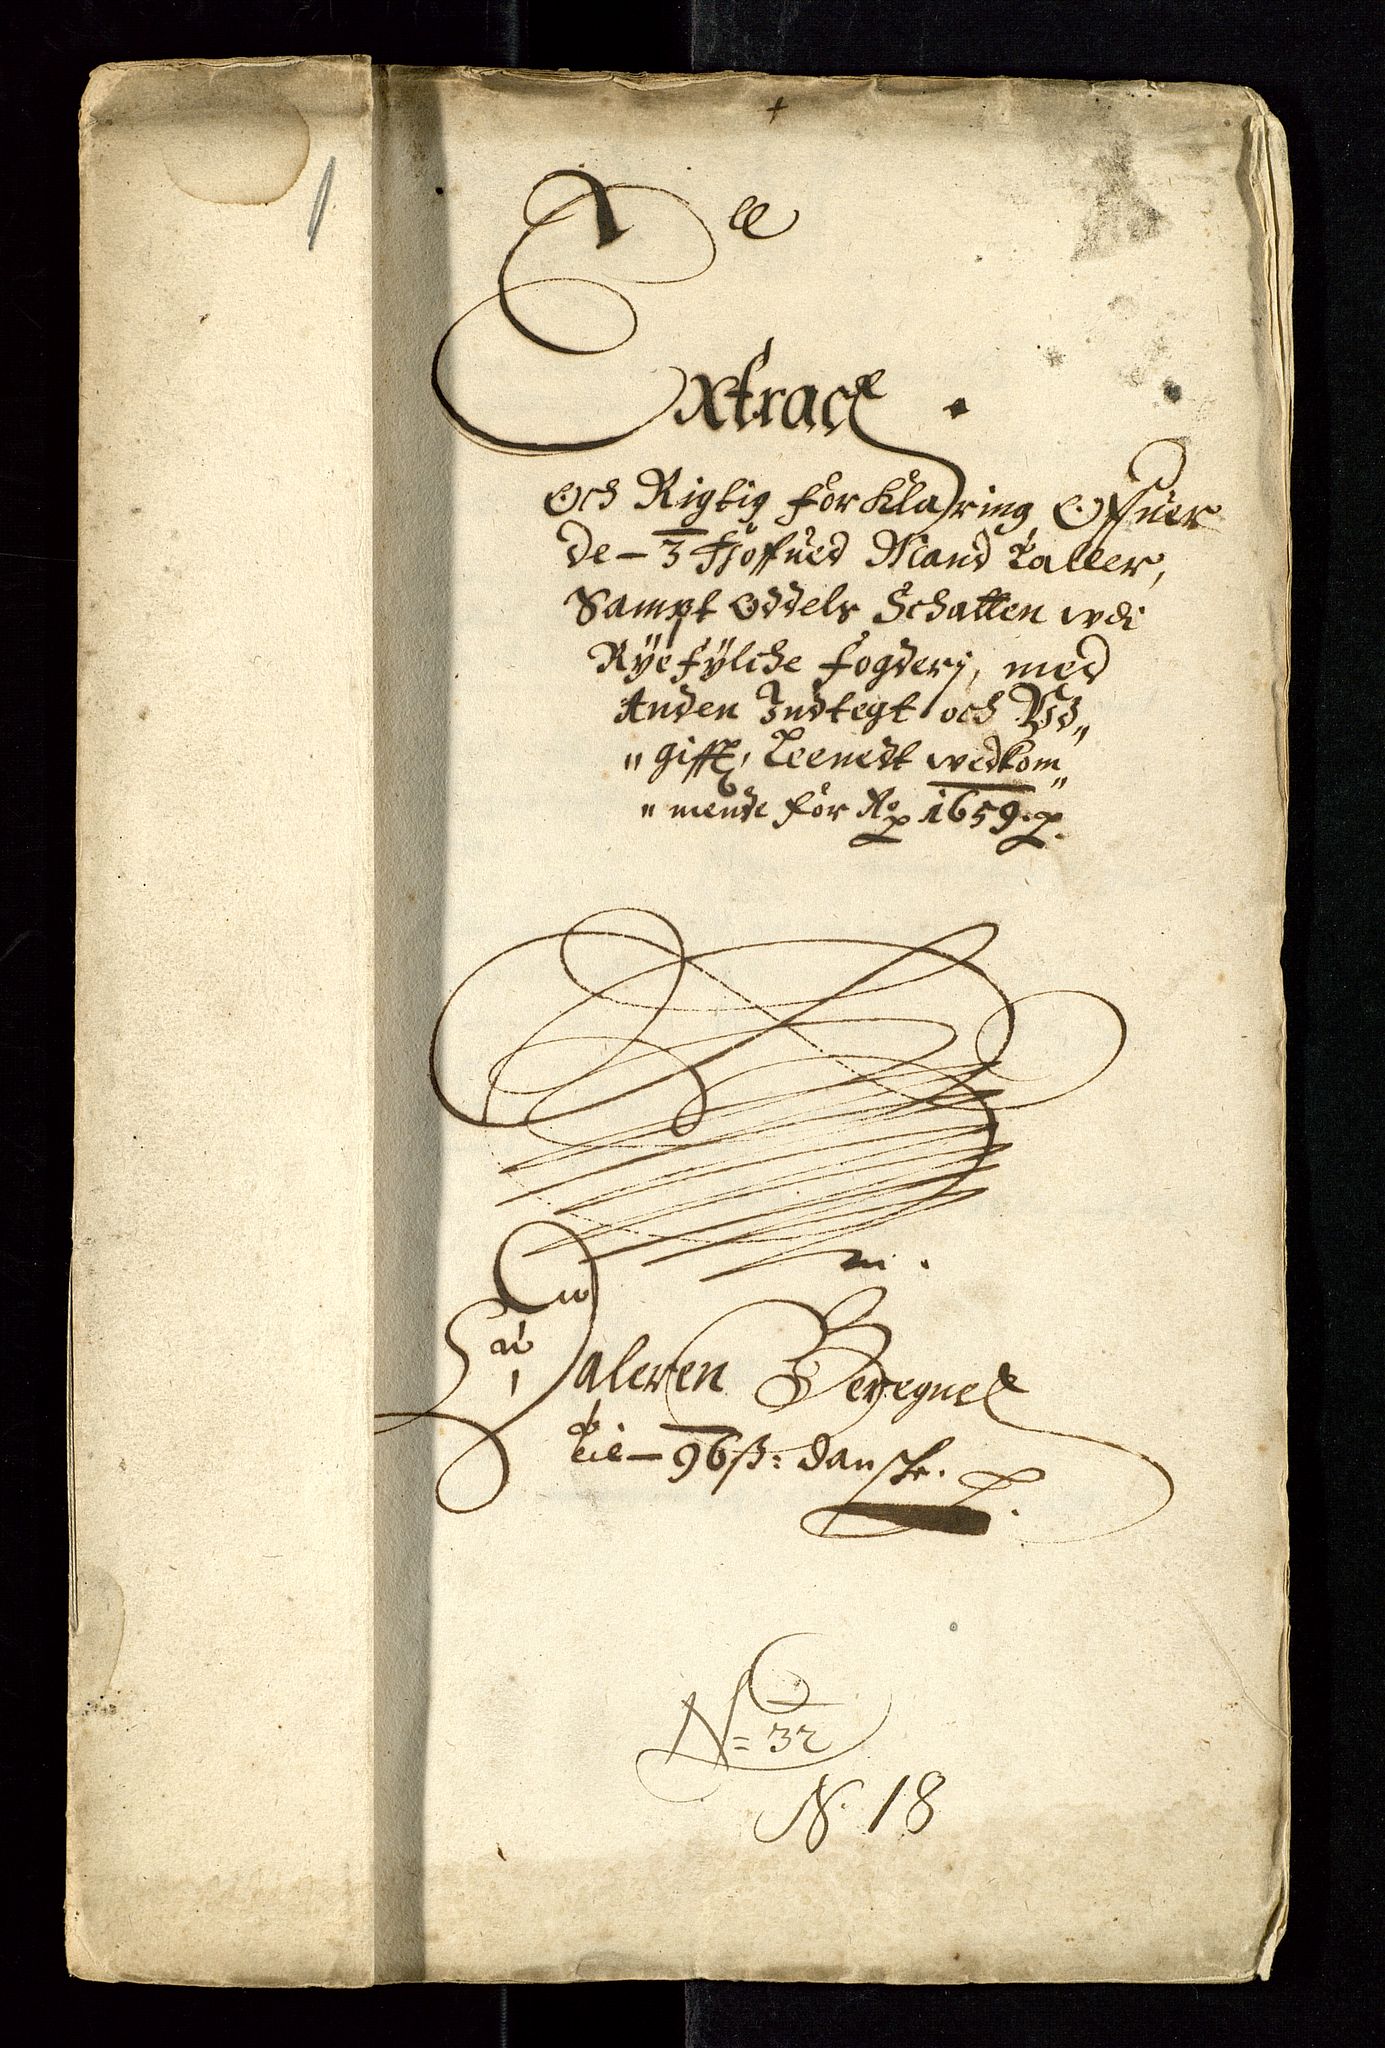 1
Extract
Och Rigtig forklaring Offuer
de - 3 Hoffued Mand taller,
Sampt Oddels Schatten wdi
Ryefylche fogderj, med
Anden Indtegt och Vd„
„gifft, Leenedt wedkom„
„mende for Ao 1659.
Daleren Beregnet
til - 96 ß: danske.
N = 32
N. 18